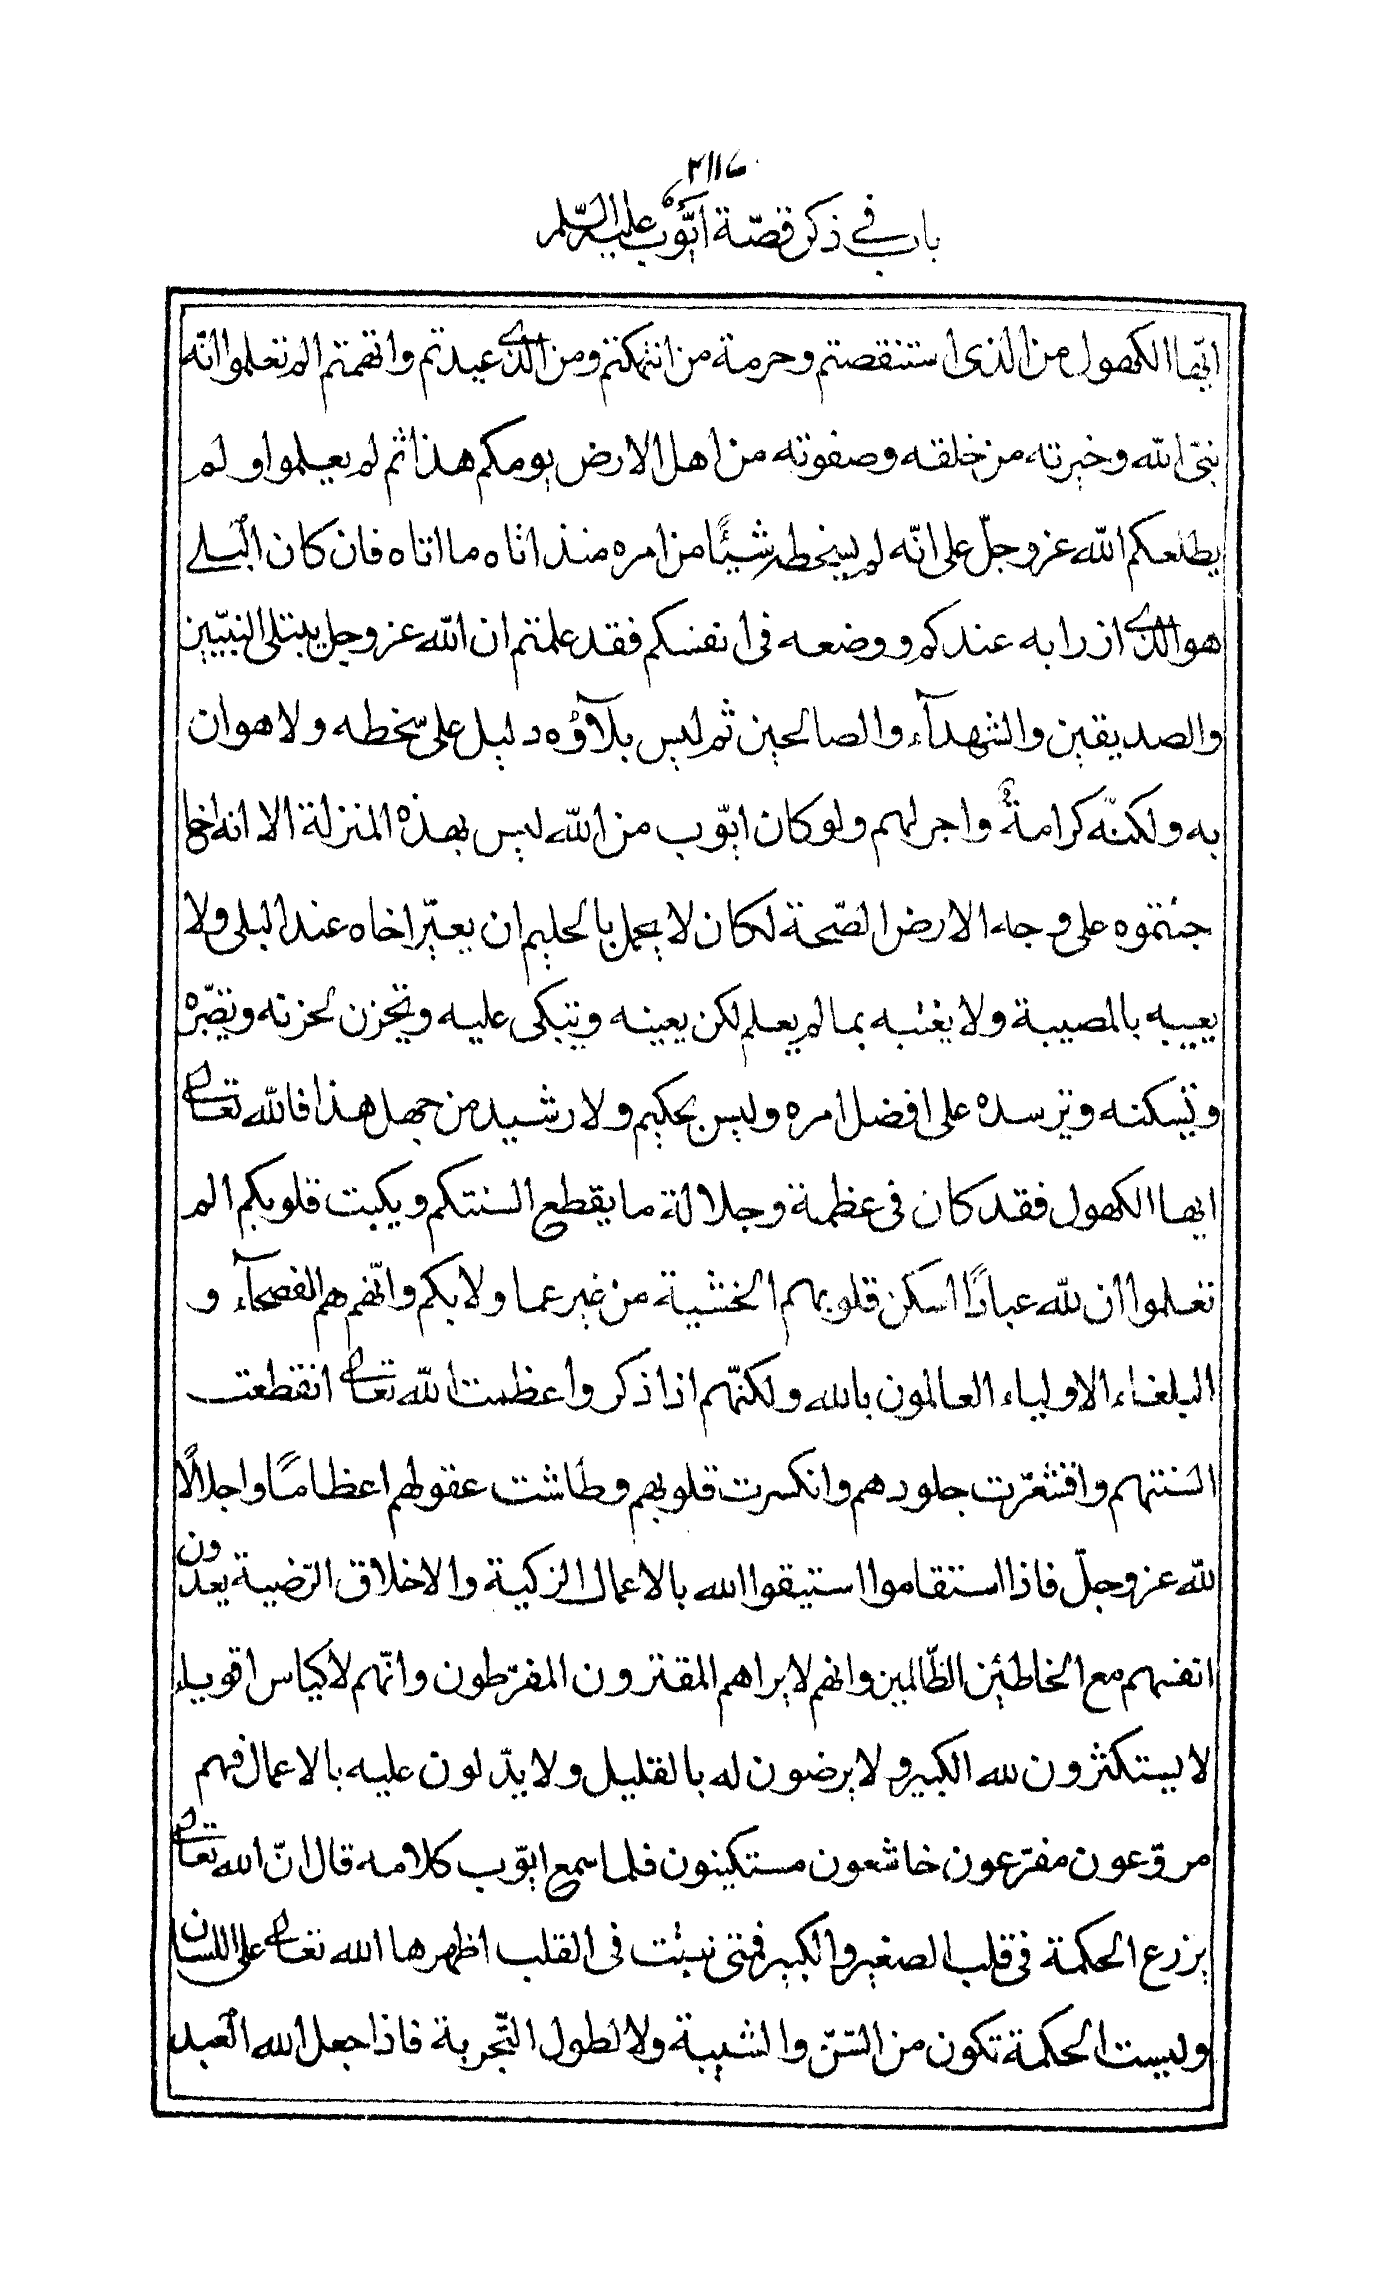 باب في ذكر قصّة ايّوب عليه السّلم
ايّها الكهول من الذى استنقصتم وحرمة من انتهكتم ومن الذى عيدتم واتهمتم الم تعلموا انّه
نبيّ الله وخيرته من خلقه وصفوته من اهل الارض يومكم هذا ثم لم يعلموا ولم
يطلعكم الله عز وجلّ على انّه لم يسخطه شيئًا من امره منذ اتاه ما اتاه فان كان البلى
هو الذى ازرا به عندكم ووضعه فى انفسكم فقد علمتم ان الله عز وجل يبتلى النبيّين
والصديقين والشهدآء والصالحين ثم ليس بلآؤه دليل على سخطه ولا هوان
به ولكنّه كرامةٌ واجر لهم ولو كان ايّوب من الله ليس بهذه المنزلة الا انه اخا
جئتموه على وجاء الارض الصّحة لكان لا يجمل بالحليم ان يعيّر اخاه عند البلى ولا
يعيبه بالمصيبة ولا يغئبه بما لم يعلم لكن يعينه ويتبكى عليه ويحزن لحزنه ويصّبره
ويسكنه ويرسده على افضل امره وليس بحكيم ولا رشيد من جهل هذا فالله تعالى
ايها الكهول فقد كان فى عظمة وجلالة ما يقطع السنتكم ويكبت قلوبكم الم
تعلموا ان لله عبادًا اسكن قلوبهم الخشية من غير عما ولا بكم وانّهم هم الفصحآء و
البلغاء الاولياء العالمون بالله ولكنّهم اذا ذكروا عظمت الله تعالى انقطعت
السنتهم واقشعرّت جلودهم وانكسرت قلوبهم وطاشت عقولهم اعظامًا واجلالًا
لله عز وجلّ فاذا استقاموا استبقوا الله بالاعمال الزكية والاخلاق الرّضية يعدون
انفسهم مع الخاطئين الظّالمين وانهم لابراهم المقترون المفرّطون وانّهم لاكياس اقوياء
لا يستكثرون لله الكبير ولا يرضون له بالقليل ولا يدّلون عليه بالاعمال فهم
مروّعون مفزّعون خاشعون مستكينون فلما سمع ايّوب كلامه قال انّ الله تعالى
يزرع الحكمة فى قلب الصغير والكبير فمتى نبئت فى القلب اظهرها الله تعالى على اللسان
وليست الحكمة تكون من السّنّ والشيبة ولا لطول التّجربة فاذا جعل الله العبد